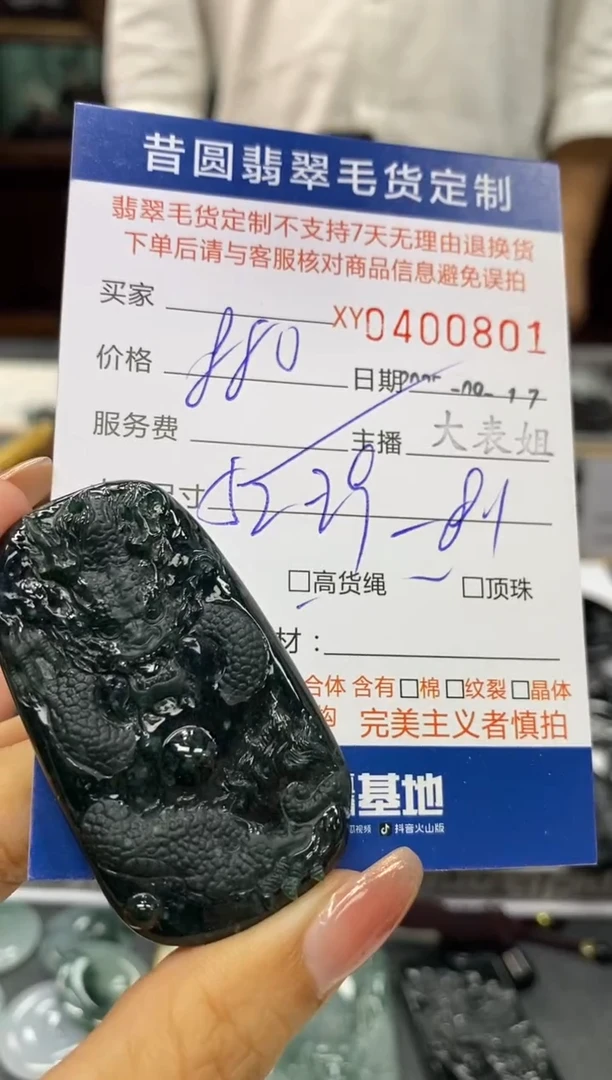 昔圆翡翠毛货定制
翡翠毛货定制不支持7天无理由退换货
下单后请与客服核对商品信息避免误拍
买家 XY0400801
价格 880 日期2025-09-17
服务费 主播 大表姐
尺寸 52-39-81
□高货绳 □顶珠
材：
合体 含有□棉□纹裂□晶体
购 完美主义者慎拍
基地
视频 抖音火山版